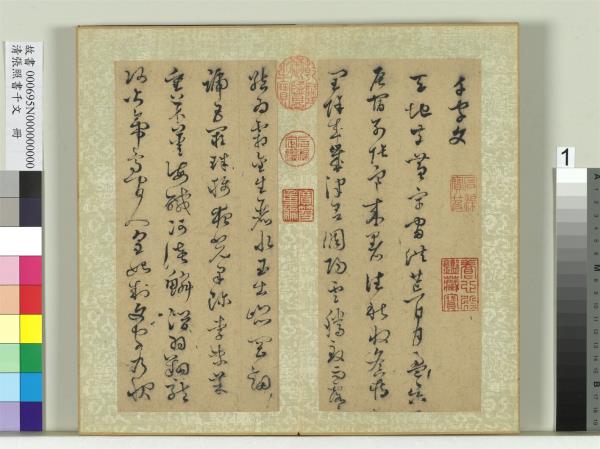 故書 000695N000000000
清張照書千文 冊
1
千字文
天地玄黃宇宙洪荒日月盈昃
辰宿列張寒來暑往秋收冬藏
閏餘成歲律呂調陽雲騰致雨露
結為霜金生麗水玉出崑岡劍
號巨闕珠稱夜光果珍李柰菜
重芥薑海鹹河淡鱗潛羽翔龍
師火帝鳥官人皇始制文字乃服
石渠寶笈
養心殿鑑藏寶
石渠定鑑
寶笈重編